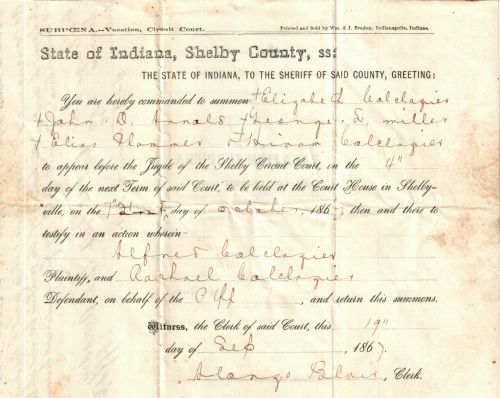 SUBPŒNA.--Vacation, Circuit Court. Printed and Sold by Wm. & J. Braden, Indianapolis, Indiana.
State of Indiana, Shelby County, ss:
THE STATE OF INDIANA, TO THE SHERIFF OF SAID COUNTY, GREETING:
You are hereby commanded to summon + Elizabeth Colclazier
+ John D. Annals + George L. Miller
+ Elias Plommer + Hiram Colclazier
to appear before the Jugde of the Shelby Circuit Court, on the 4"
day of the next Term of said Court, to be held at the Court House in Shelby-
ville, on the 7" day of October, 1867, then and there to
testify in an action wherein
Alfred Colclazier
Plaintiff, and Rachael Colclazier
Defendant, on behalf of the Plff, and return this summons.
Witness, the Clerk of said Court, this 19"
day of Sep, 1867.
Alonzo Blair, Clerk.